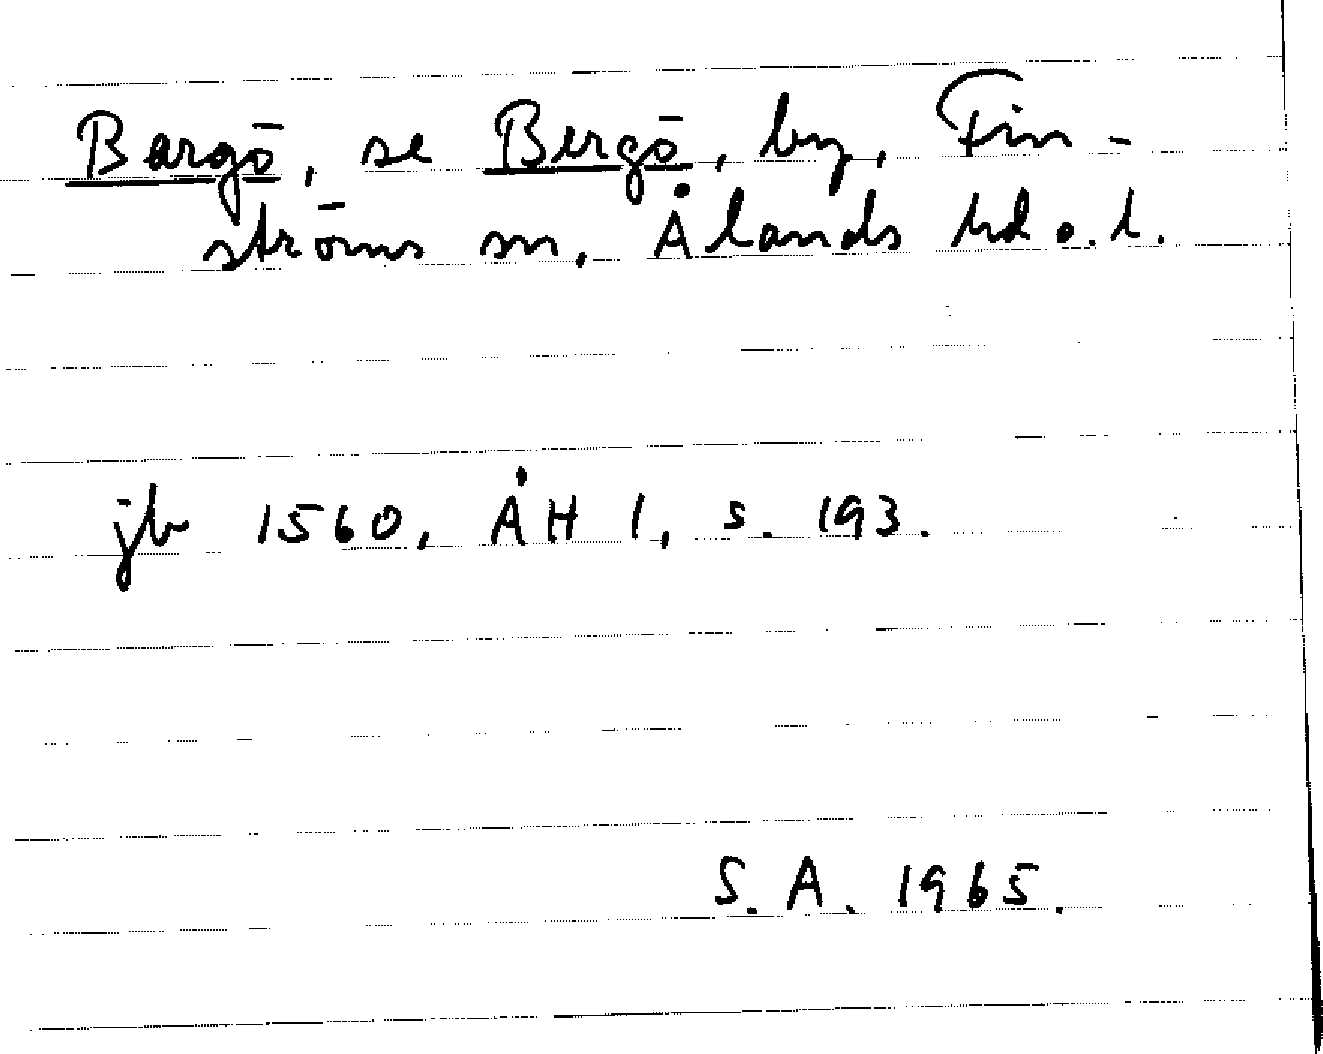 Bargö, se Bergö, by, Fin-
ströms sn, Ålands hd o. l.
jb 1560, ÅH 1, s. 193.
S. A. 1965.